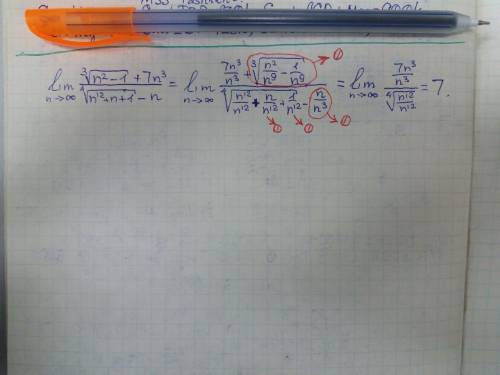 lim n→∞ (∛(n²-1) + 7n³) / (∜(n¹²+n+1) - n) = lim n→∞ (7n³/n³ + ∛(n²/n⁹ - 1/n⁹) → 0) / (∜(n¹²/n¹² + n/n¹² → 0 + 1/n¹² → 0) - n/n³ → 0) = lim n→∞ (7n³/n³) / ∜(n¹²/n¹²) = 7.